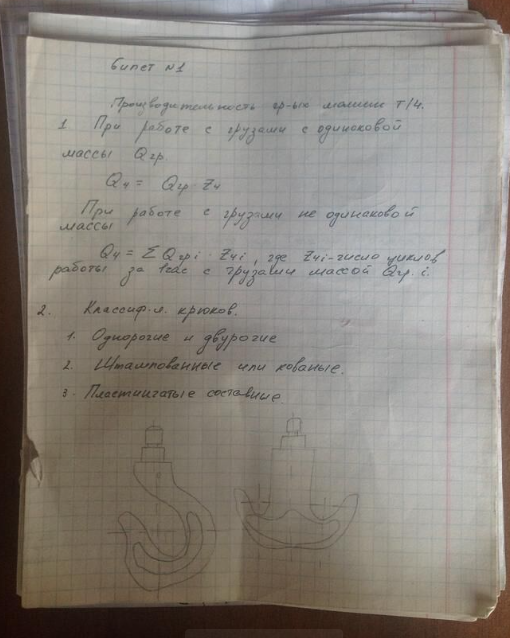 Билет №1
Производительность гр-ых машин т/ч.
1. При работе с грузами с одинаковой
массы Qгр
Qч = Qгр · Zч
При работе с грузами не одинаковой
массы
Qч = Σ Qгрi · Zчi, где Zчi-число циклов
работы за 1час с грузами массой Qгр i.
2. Классиф-я. крюков.
1. Однорогие и двурогие
2. Штампованные или кованые.
3. Пластинчатые составные